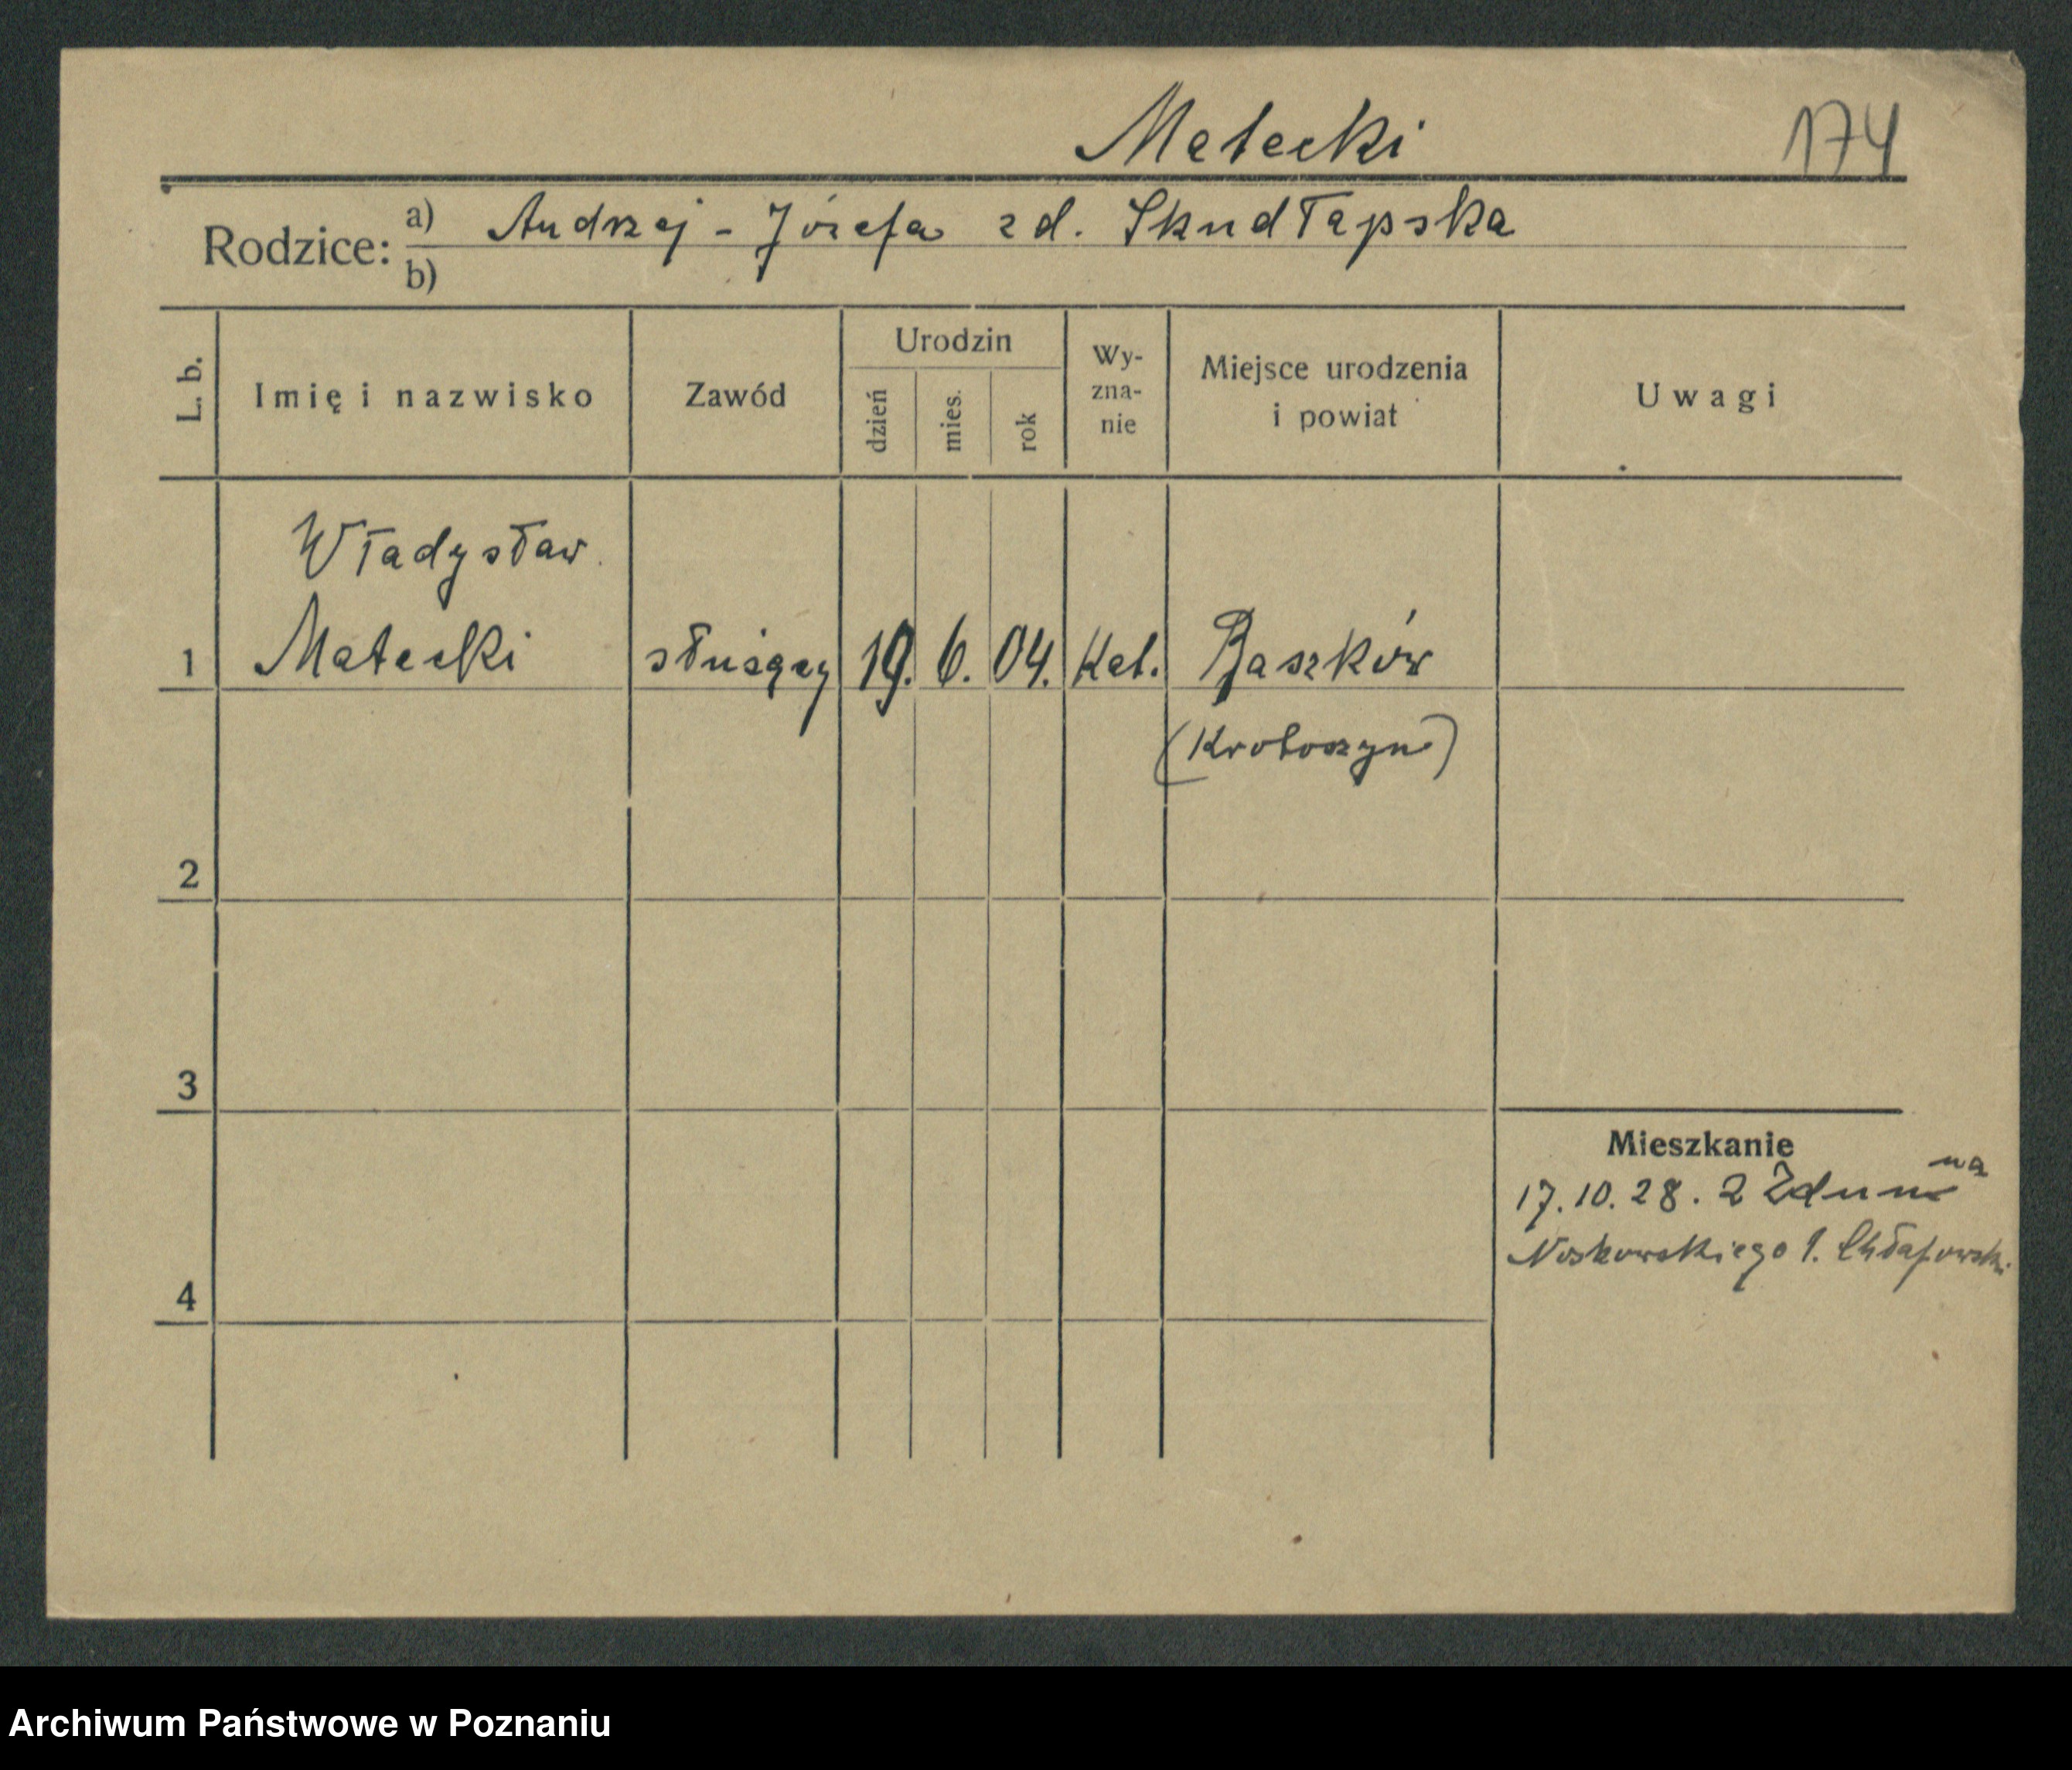 Matecki 174
Rodzice: a) Andrzej - Józefa zd. Skudłapska
b)
L. b. Imię i nazwisko Zawód Urodzin dzień mies. rok Wy-zna-nie Miejsce urodzenia i powiat Uwagi
Władysław
1 Matecki służący 19. 6. 04. Kat. Baszków
(Krotoszyn)
2
3
Mieszkanie
17.10.28. z Zdun
Noskowskiego 1. Chłapowski
4
Archiwum Państwowe w Poznaniu